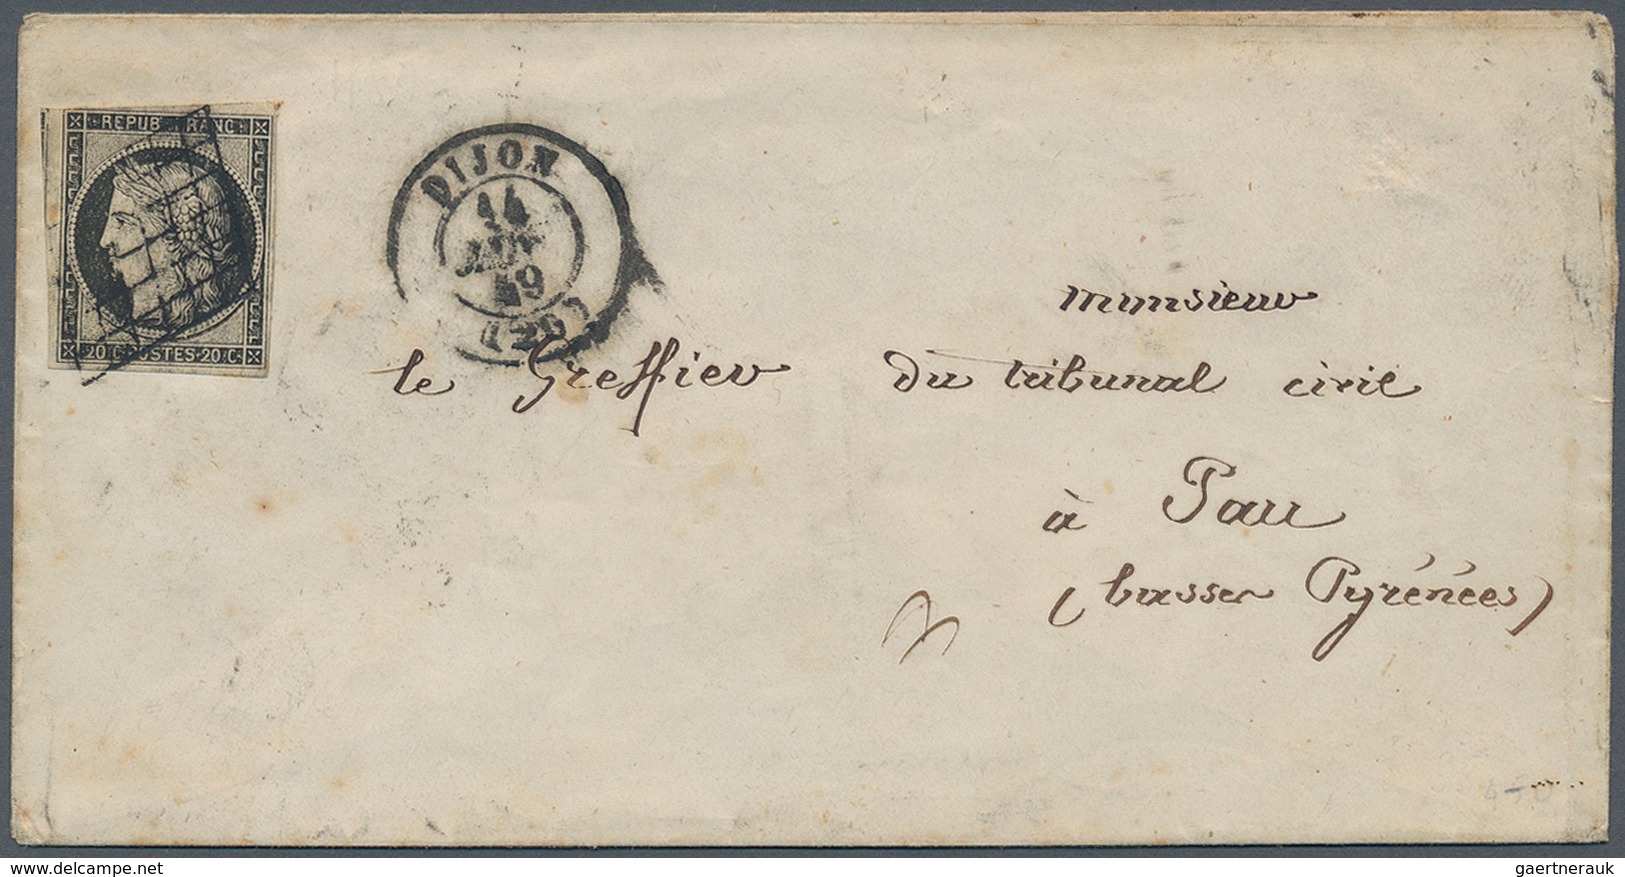 REPUB. FRANC.
20 C. POSTES 20 C.
DIJON
14
49
(20)
monsieur
le Greffier du tribunal civil
à Pau
(basses Pyrénées)
delcampe.net
gaertnerauk